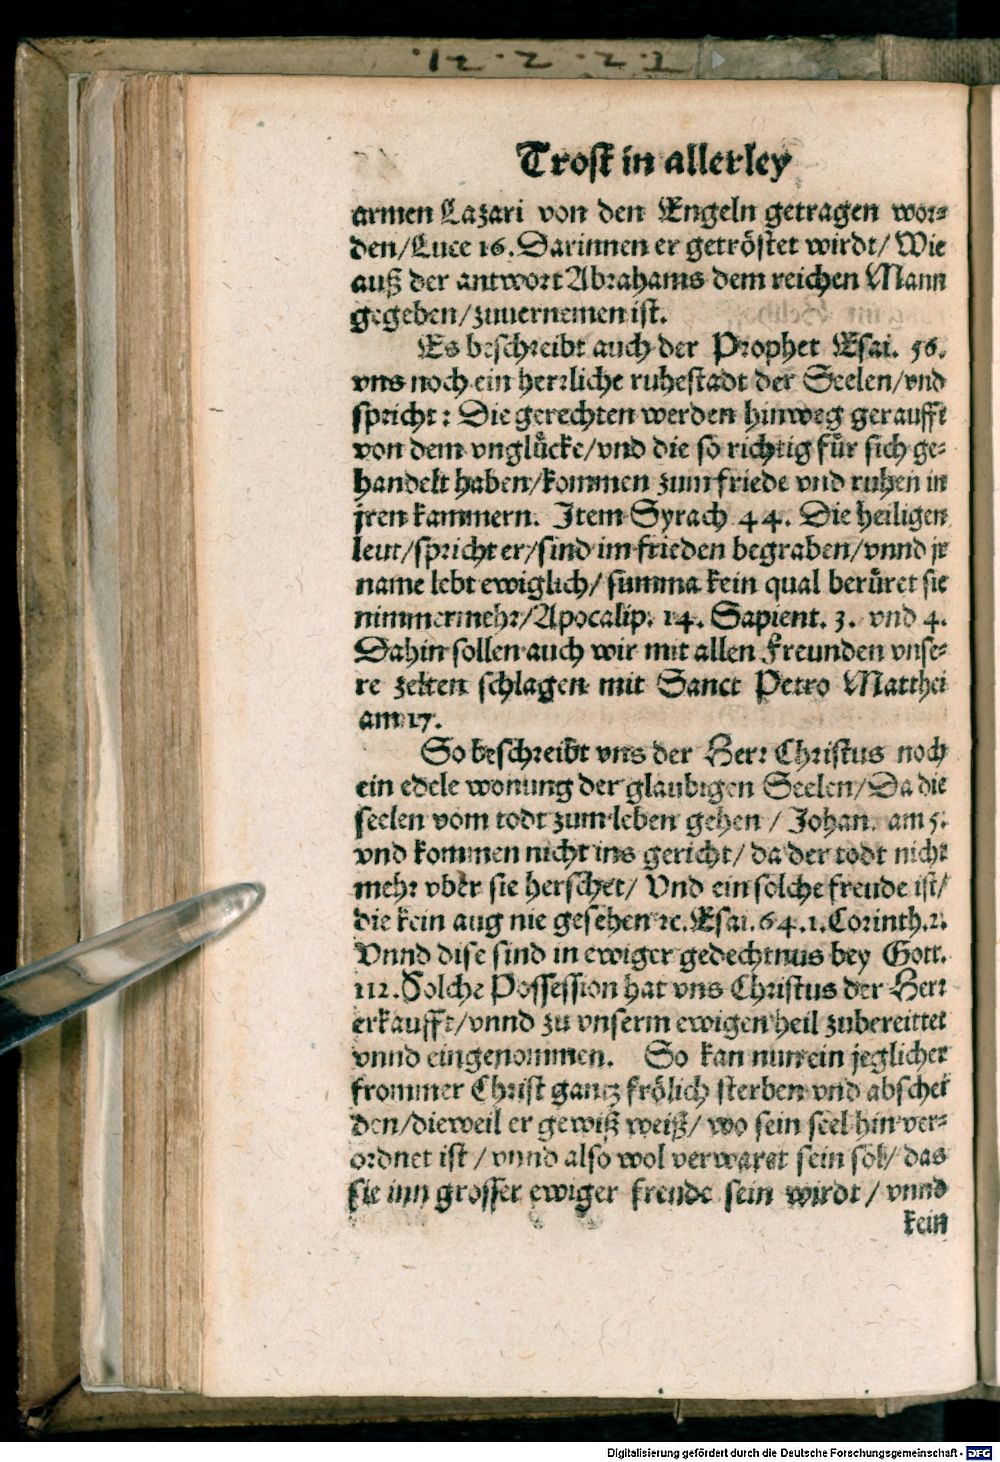 12.2.23
Trost in allerley
armen Lazari von den Engeln getragen wor=
den/Luce 16. Darinnen er getröstet wirdt/ Wie
auß der antwort Abrahams dem reichen Mann
gegeben/zuuernemen ist.
Es beschreibt auch der Prophet Esai. 56.
vns noch ein herrliche ruhestadt der Seelen/vnd
spricht: Die gerechten werden hinweg gerafft
von dem vnglücke/vnd die so richtig für sich ge=
handelt haben/kommen zum friede vnd ruhen in
jren kammern. Item Syrach 44. Die heiligen
leut/spricht er/sind im frieden begraben/vnnd jr
name lebt ewiglich/ summa kein qual berüret sie
nimmermehr/Apocalip. 14. Sapient. 3. vnd 4.
Dahin sollen auch wir mit allen Freunden vnse=
re zelten schlagen mit Sanct Petro Matthei
am 17.
So beschreibt vns der Herr Christus noch
ein edele wonung der glaubigen Seelen/Da die
seelen vom todt zum leben gehen / Johan. am 5.
vnd kommen nicht ins gericht/ da der todt nicht
mehr vber sie herschet/ Vnd ein solche freude ist/
die kein aug nie gesehen ꝛc. Esai. 64. 1. Corinth. 2.
Vnnd dise sind in ewiger gedechtnus bey Gott.
III. Solche Possession hat vns Christus der Herr
erkaufft/vnnd zu vnserm ewigen heil zubereittet
vnnd eingenommen. So kan nun ein jeglicher
frommer Christ gantz frölich sterben vnd abschei
den/dieweil er gewiß weiß/ wo sein seel hin ver=
ordnet ist / vnnd also wol verwaret sein sol/ das
sie inn grosser ewiger freude sein wirdt / vnnd
kein
Digitalisierung gefördert durch die Deutsche Forschungsgemeinschaft - DFG